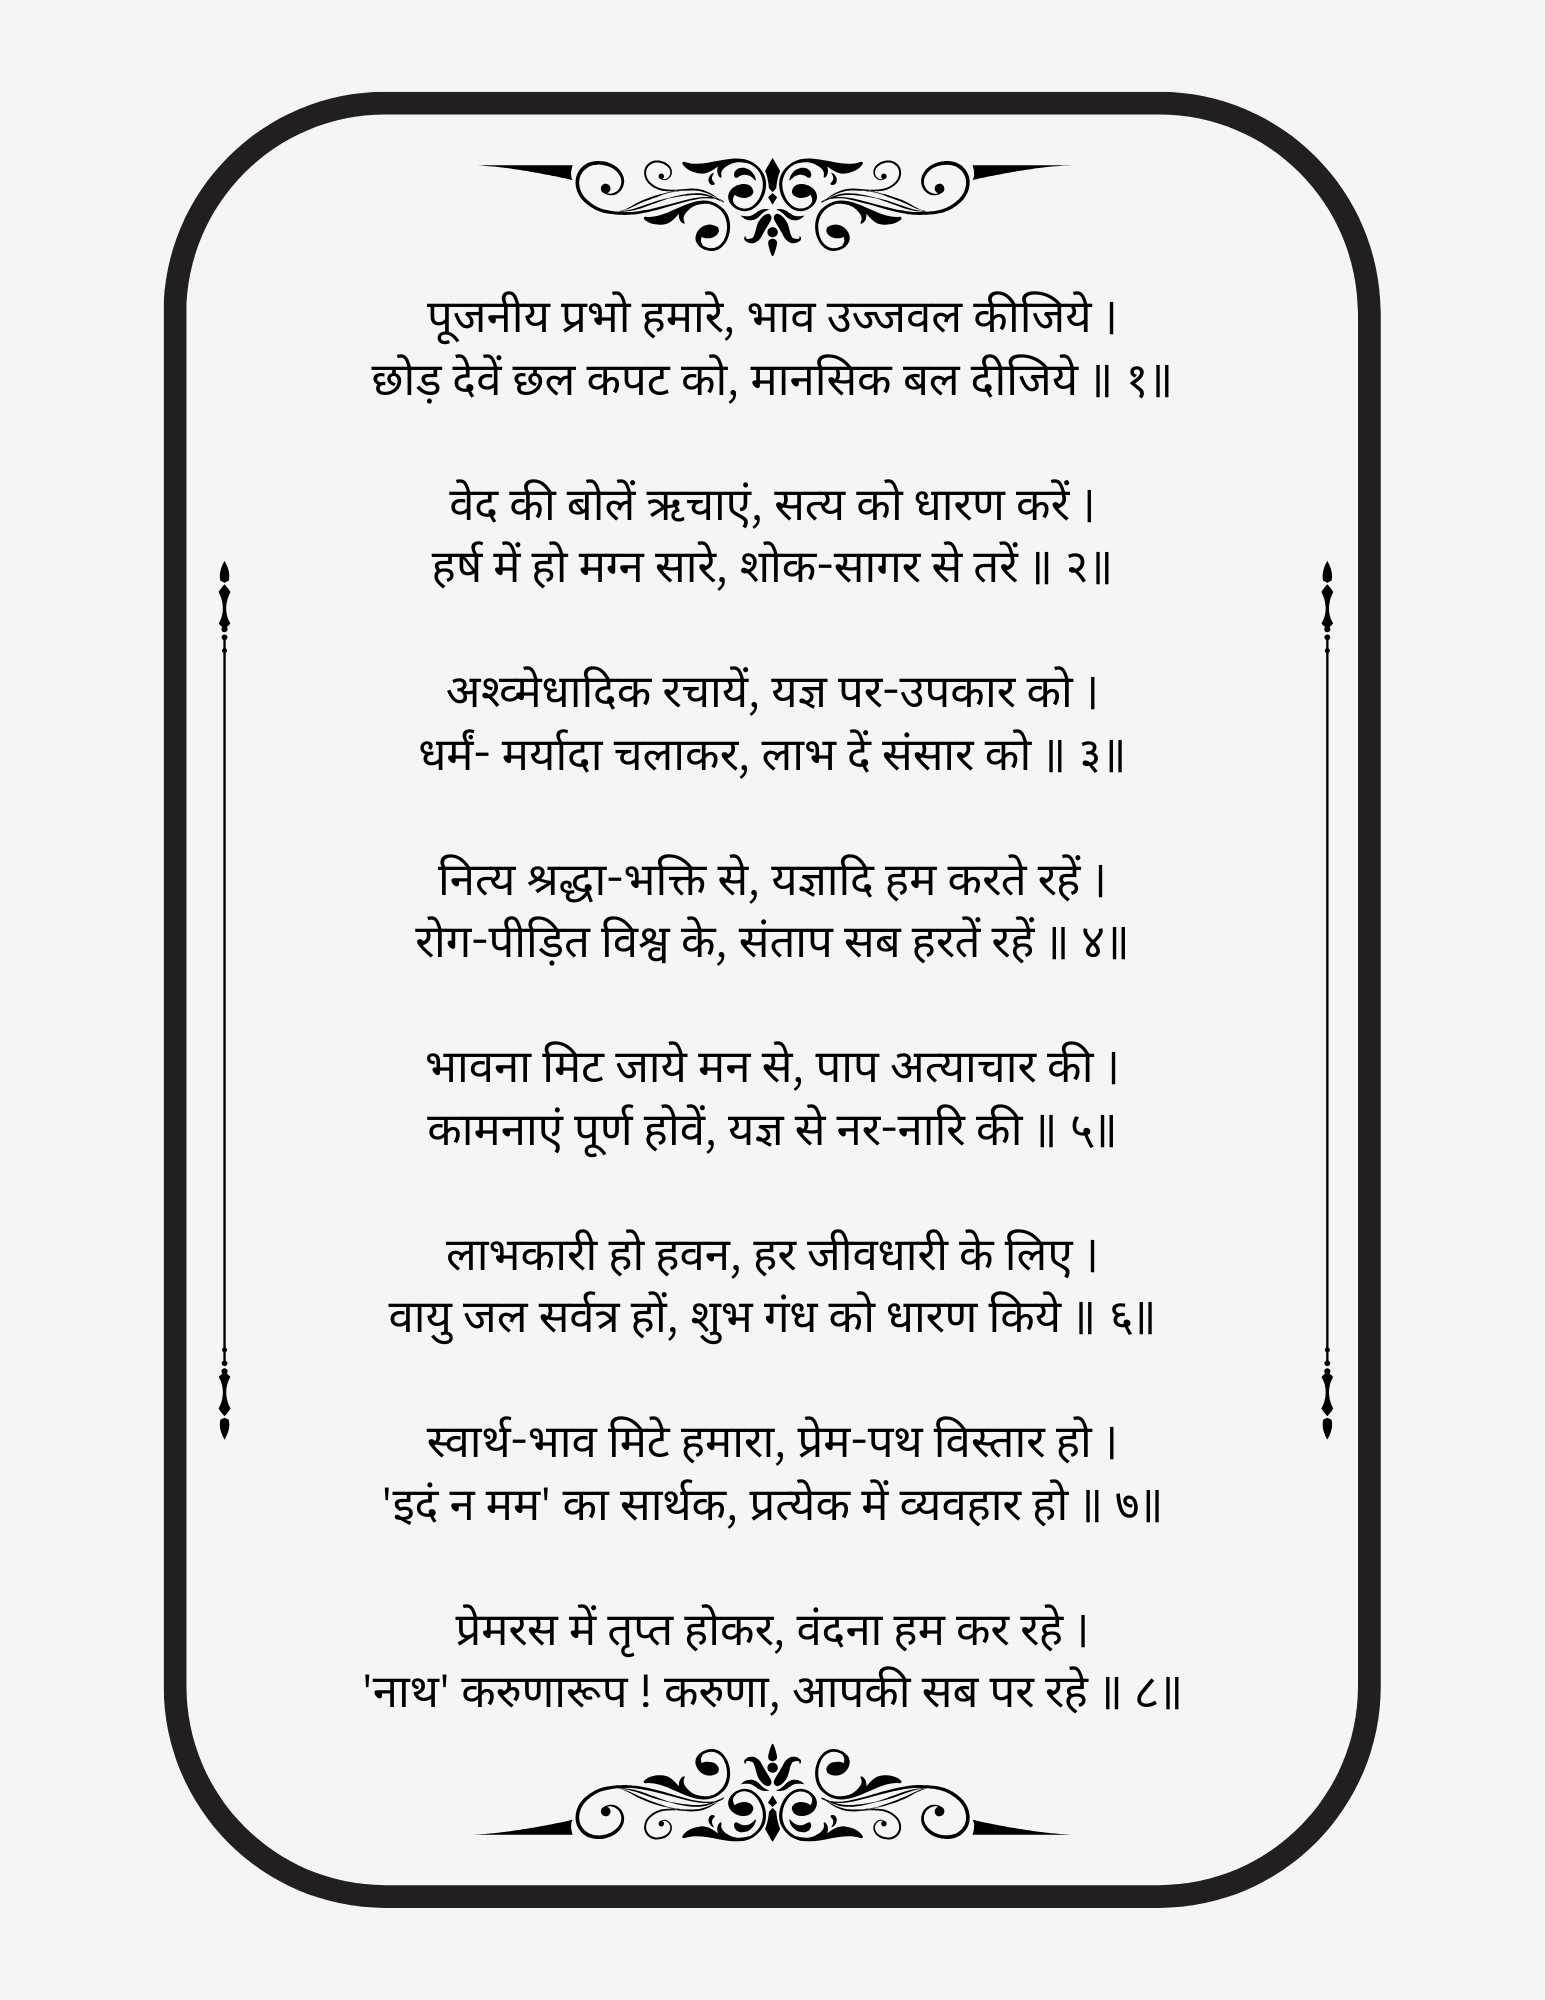 पूजनीय प्रभो हमारे, भाव उज्जवल कीजिये ।
छोड़ देवें छल कपट को, मानसिक बल दीजिये ॥ १॥
वेद की बोलें ऋचाएं, सत्य को धारण करें ।
हर्ष में हो मग्न सारे, शोक-सागर से तरें ॥ २॥
अश्व्मेधादिक रचायें, यज्ञ पर-उपकार को ।
धर्मं- मर्यादा चलाकर, लाभ दें संसार को ॥ ३॥
नित्य श्रद्धा-भक्ति से, यज्ञादि हम करते रहें ।
रोग-पीड़ित विश्व के, संताप सब हरतें रहें ॥ ४॥
भावना मिट जाये मन से, पाप अत्याचार की ।
कामनाएं पूर्ण होवें, यज्ञ से नर-नारि की ॥ ५॥
लाभकारी हो हवन, हर जीवधारी के लिए ।
वायु जल सर्वत्र हों, शुभ गंध को धारण किये ॥ ६॥
स्वार्थ-भाव मिटे हमारा, प्रेम-पथ विस्तार हो ।
'इदं न मम' का सार्थक, प्रत्येक में व्यवहार हो ॥ ७॥
प्रेमरस में तृप्त होकर, वंदना हम कर रहे ।
'नाथ' करुणारूप ! करुणा, आपकी सब पर रहे ॥ ८॥